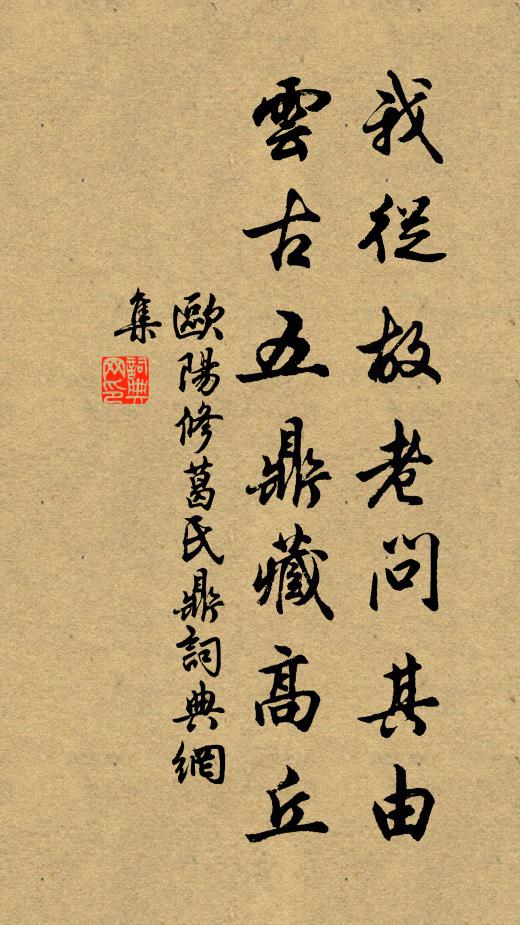 我從故老問其由
雲古五鼎藏高丘
歐陽修葛氏鼎詞典網
集
詞典网印